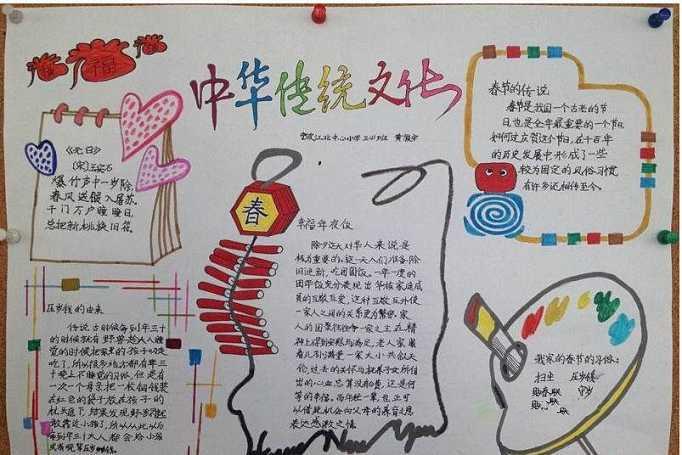 福
中华传统文化
春节的传说
春节是我国一个古老的节
日也是全年最重要的一个节日
如何过庆贺这个节日,在千百年
的历史发展中形成了一些
较为固定的风俗习惯
有许多还相传至今。
《元日》
(宋)王安石
爆竹声中一岁除
春风送暖入屠苏
千门万户曈曈日
总把新桃换旧符
春
年夜饭
除夕这天对华人来说是
极为重要的,这一天人们准备除
旧迎新,吃团圆饭。一年一度的
团年饭充分表现出华族家庭成
员的互敬互爱,这种互敬互爱使
一家人之间的关系更为紧密。家
人的团聚往往令一家之主在精
神上得到安慰与满足,老人家眼
看儿孙满堂一家大小共叙天
伦,过去的关怀与抚养子女所付
出的心血总算没有白费,这是何
等的幸福。而年轻一辈,也正可
以借此机会向父母的养育之恩
表达感激之情
压岁钱的由来
传说古时候每到年三十
的时候就有野兽趁人人睡
一次一个母亲把一枚铜钱装
在红色的袋子放在孩子的
枕头底下结果发现野兽
我家的春节的习俗:
扫尘 压岁钱
贴春联 守岁
Happy New Year